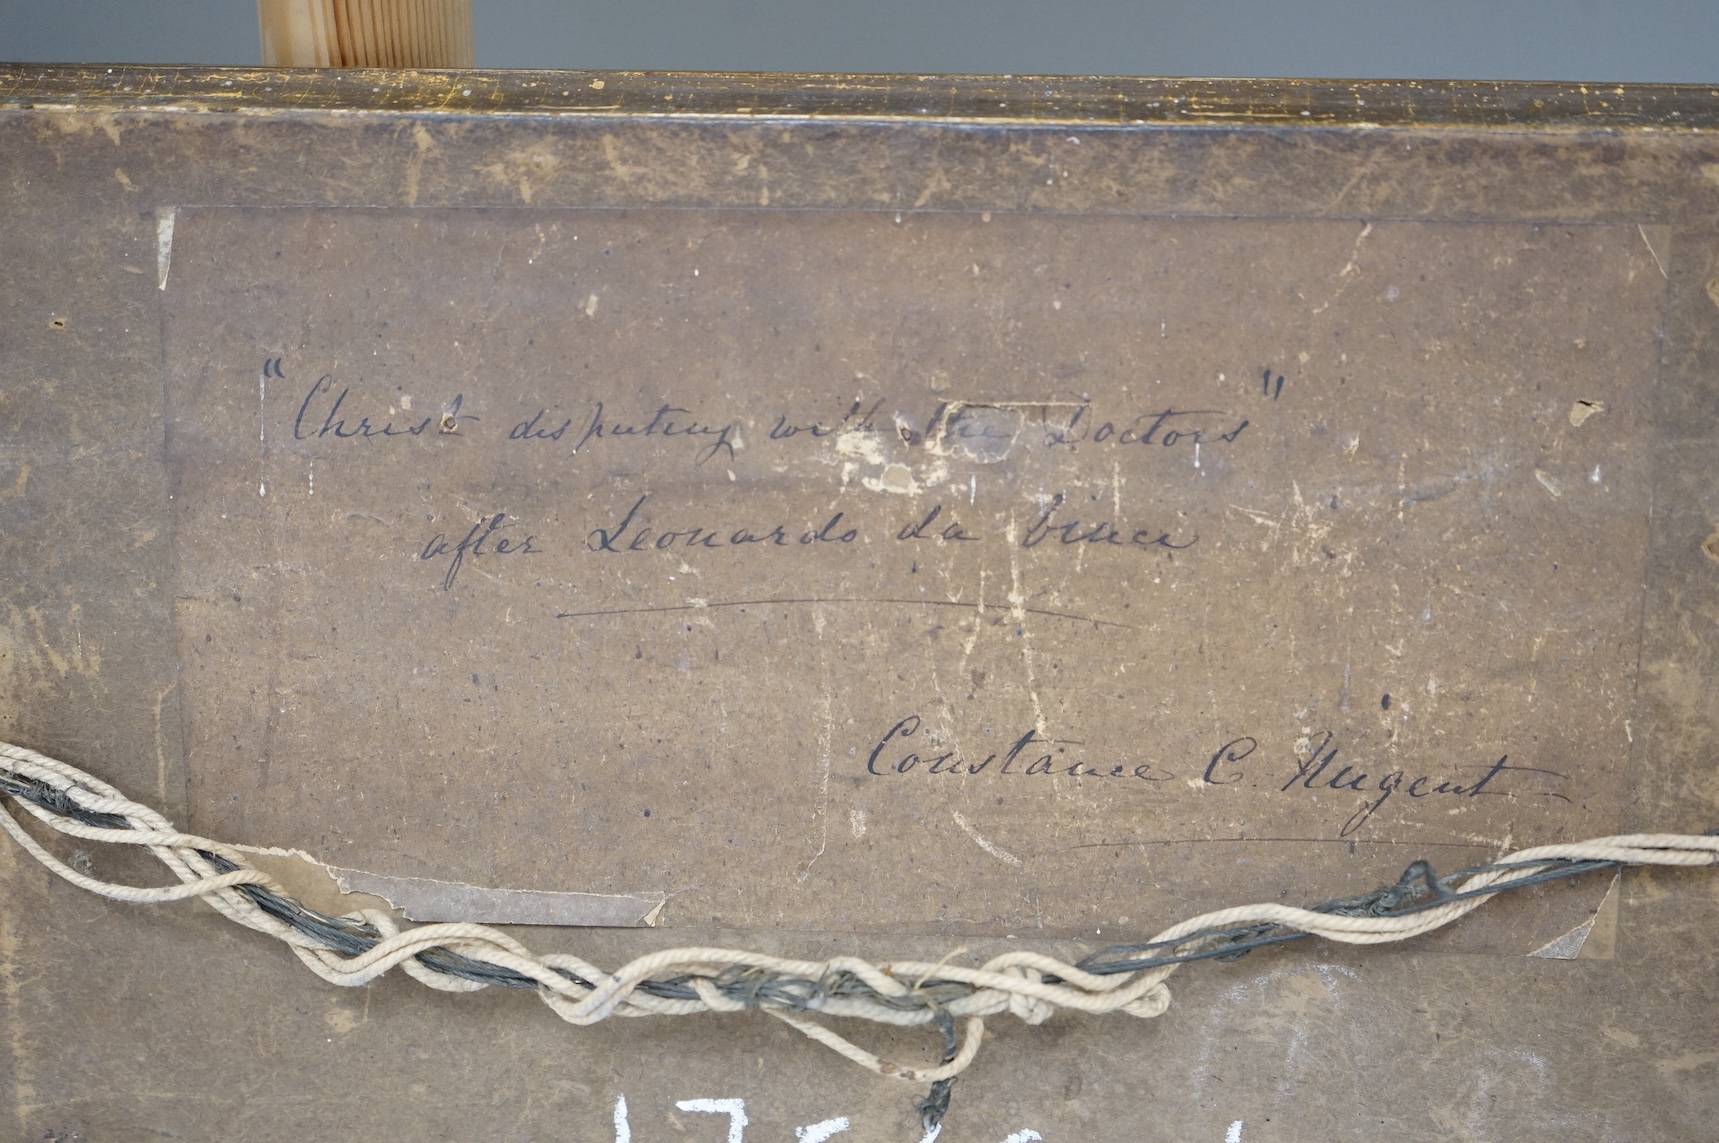 "Christ disputing with the Doctors"
after Leonardo da Vinci
Constance C. Nugent